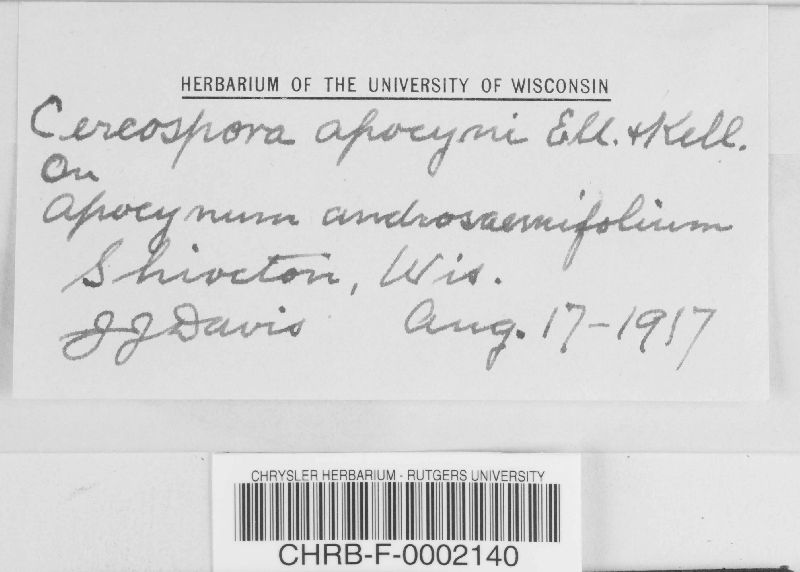 HERBARIUM OF THE UNIVERSITY OF WISCONSIN
Cercospora apocyni Ell. & Kell.
On
Apocynum androsaemifolium
Shiocton, Wis.
J J Davis Aug. 17-1917
CHRYSLER HERBARIUM - RUTGERS UNIVERSITY
CHRB-F-0002140